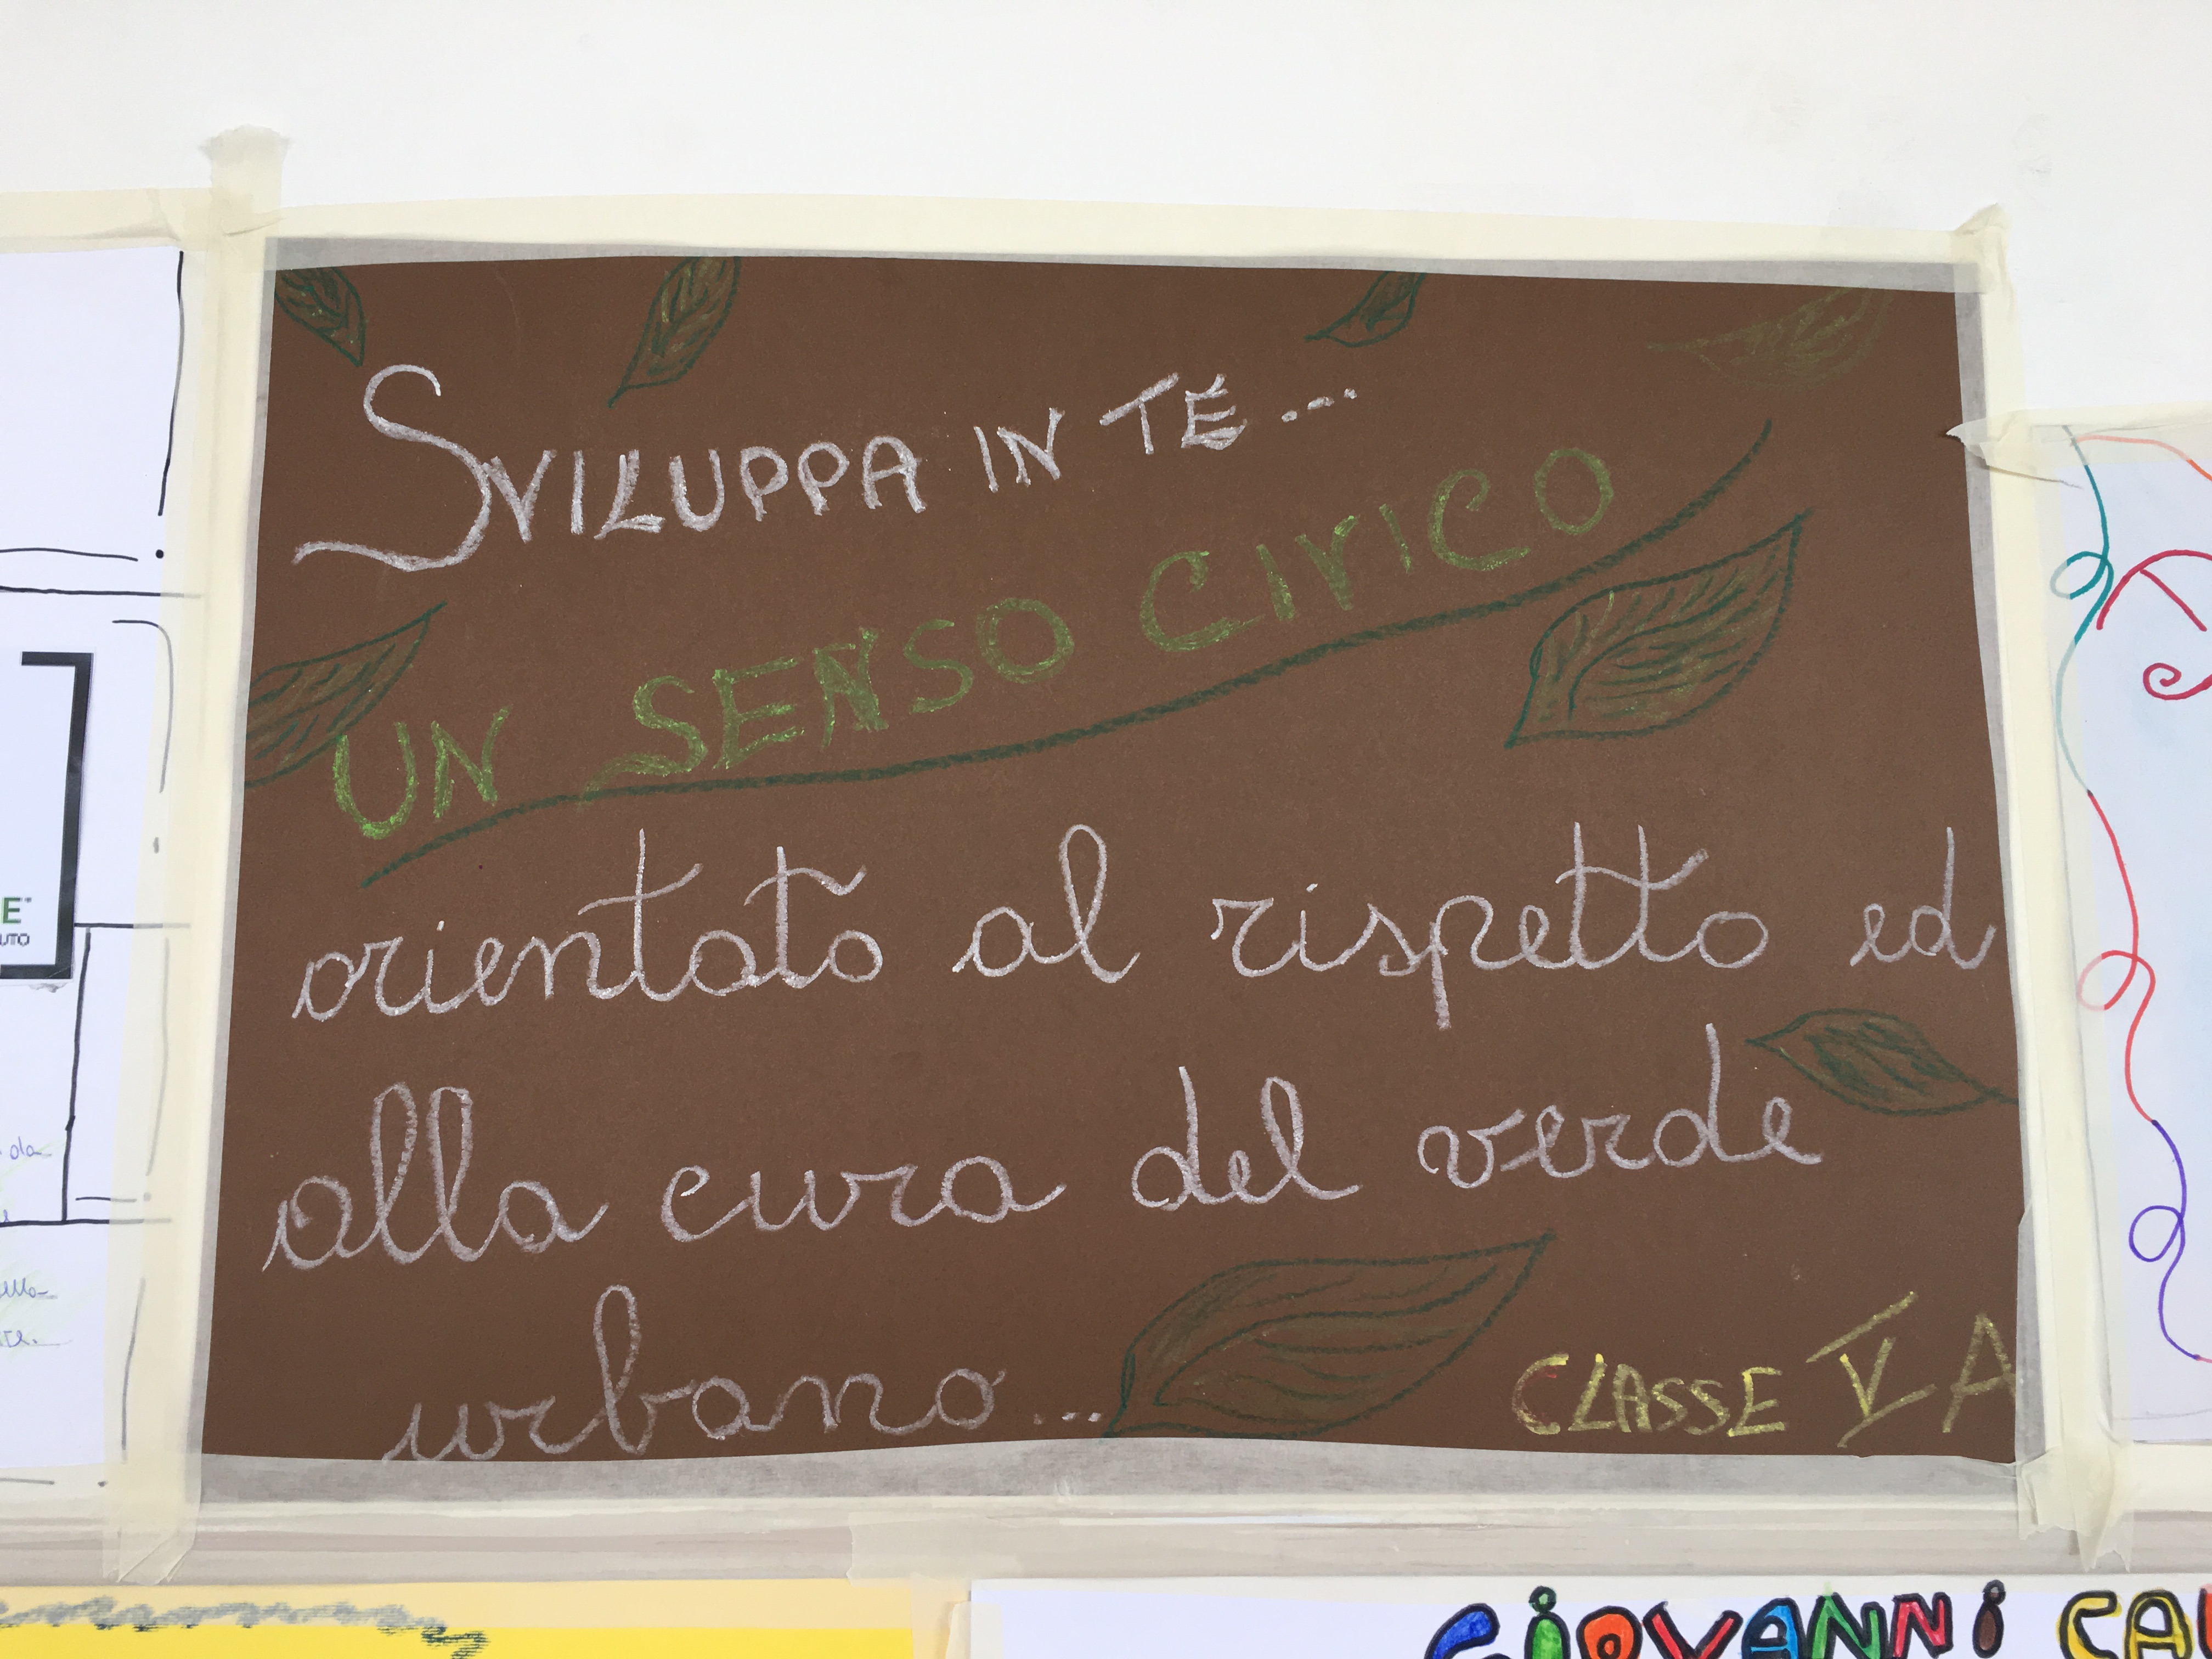 SVILUPPA IN TE...
UN SENSO CIVICO
orientato al rispetto ed
alla cura del verde
urbano...
CLASSE V A
E
UTO
da
GIOVANNI CA